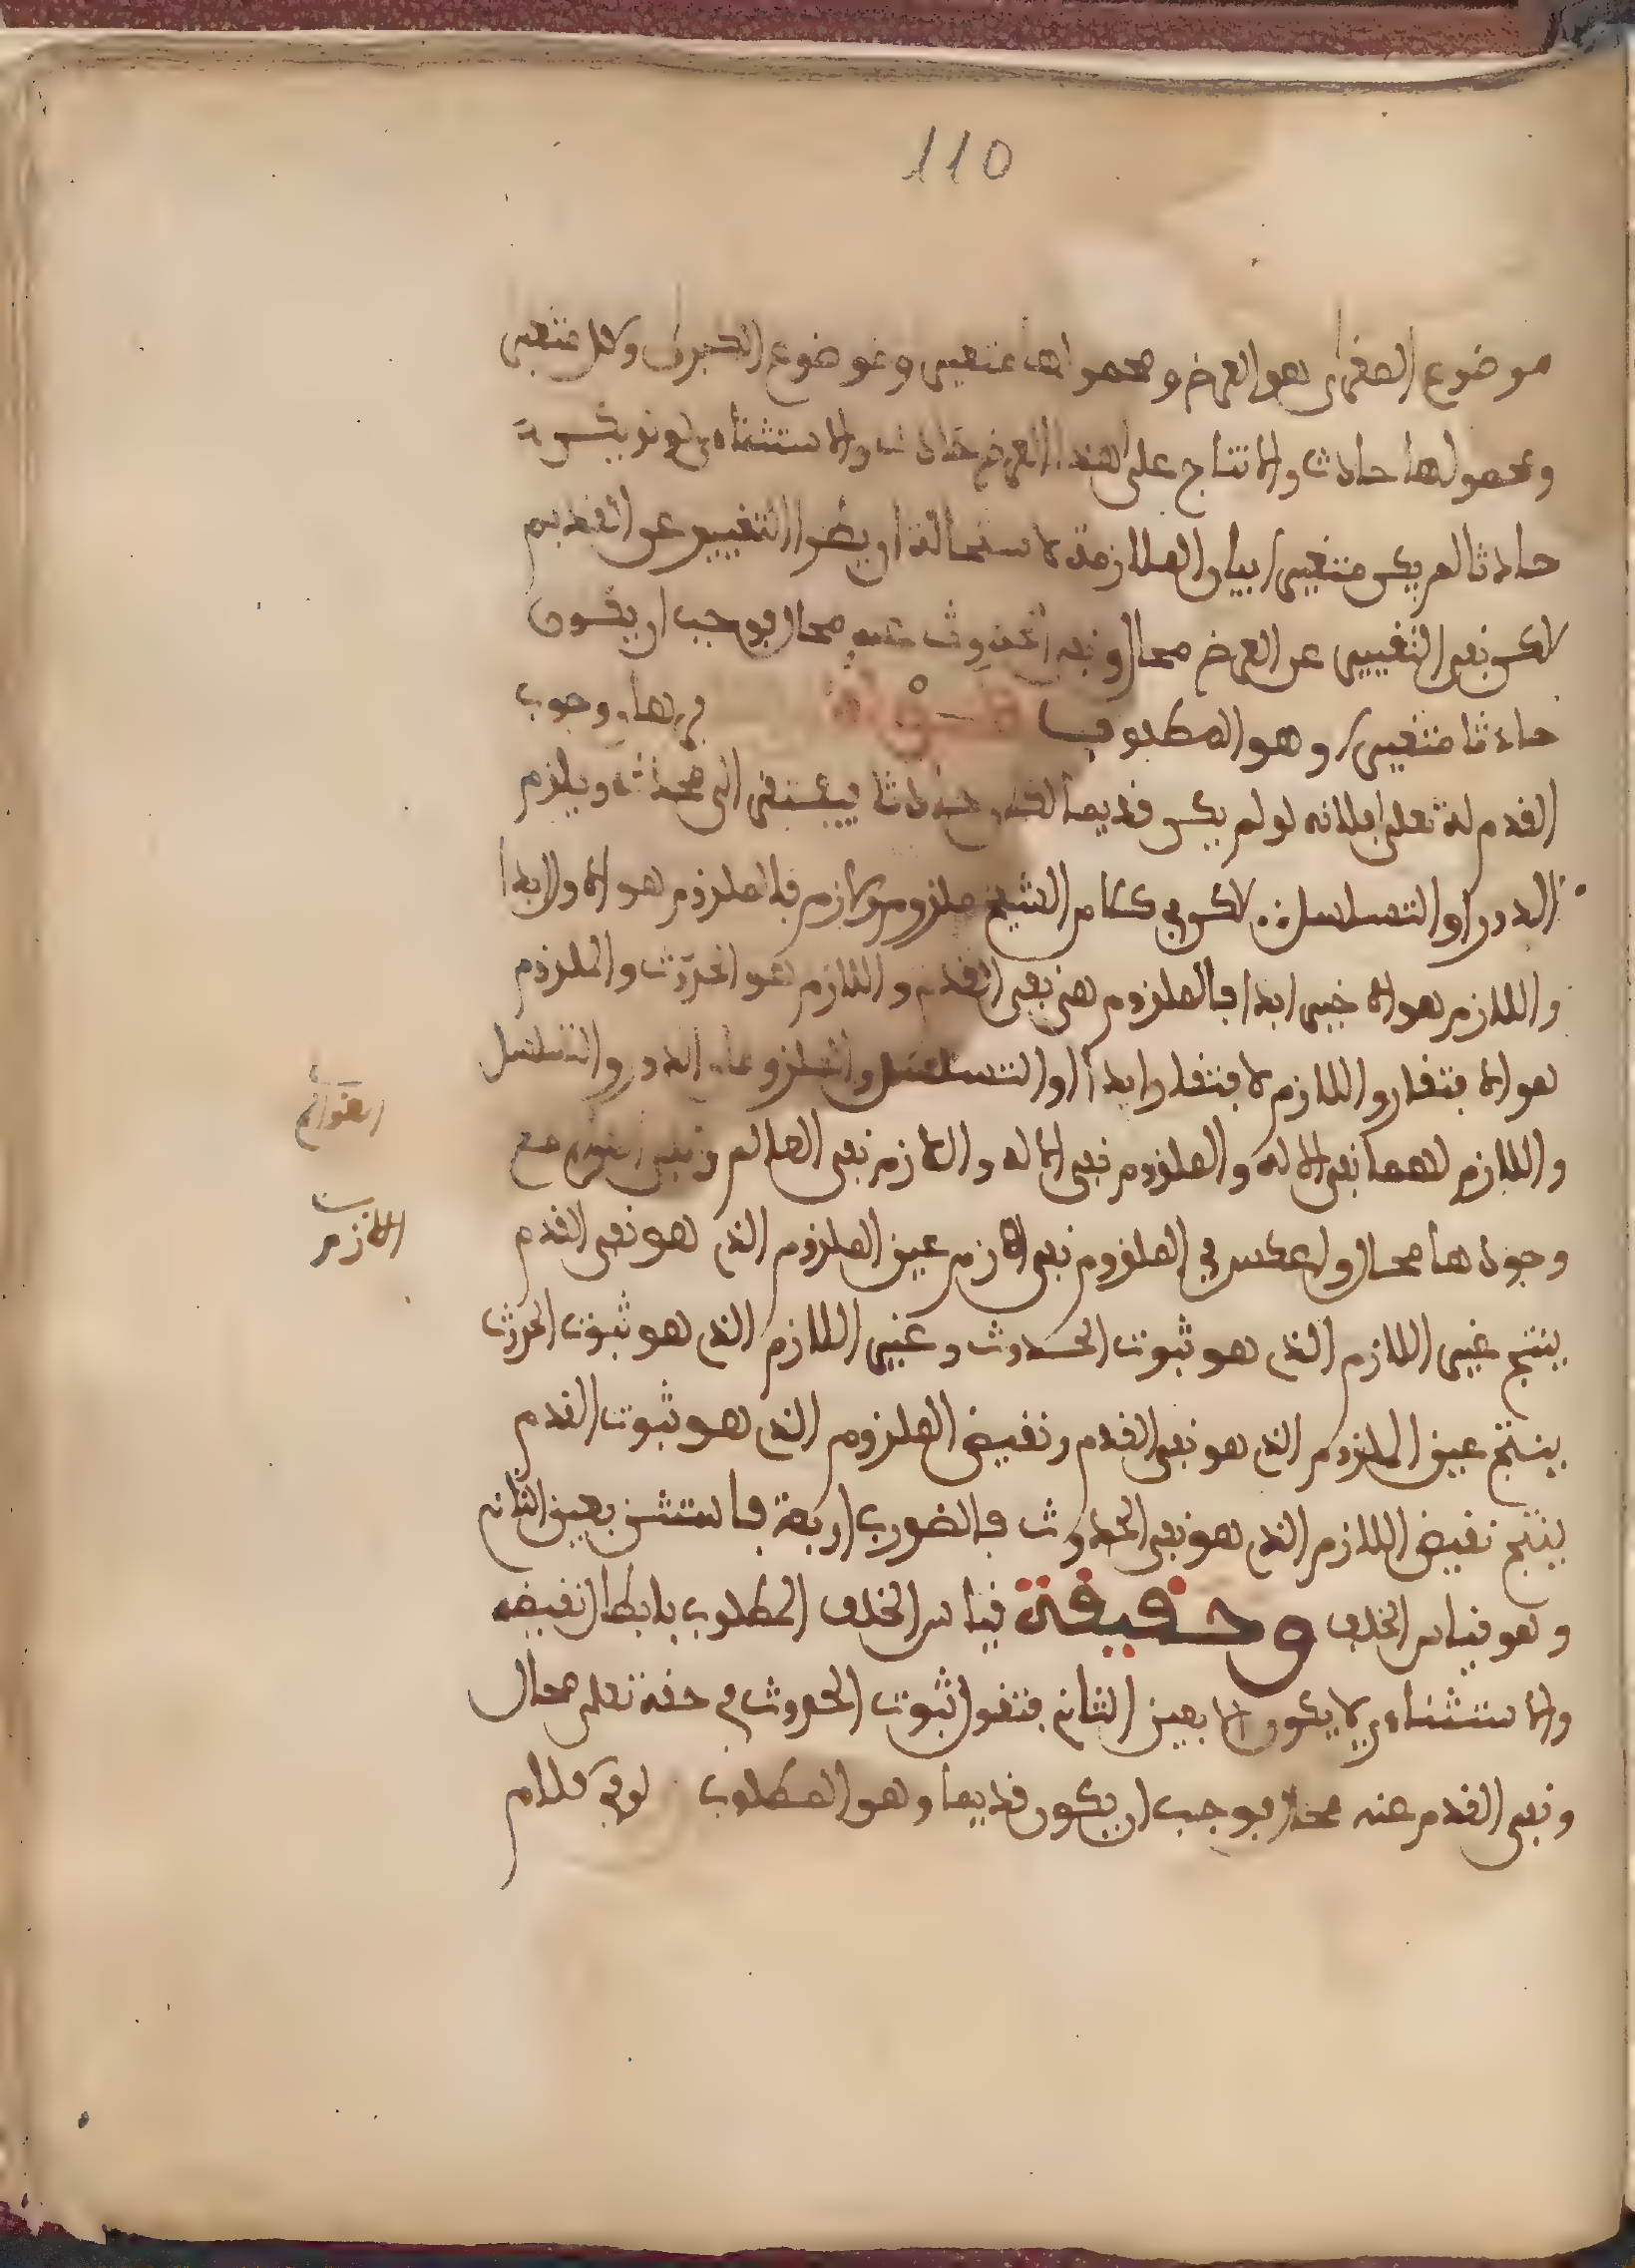 110
موضوع الصغرى هو العرض ومحمولها متغير وموضوع الكبرى وكل متغير
ومحمولها حادث والانتاج على هذا العرض حادث والاستثناءي لو لم يكن
حادثا لم يكن متغيرا بيان الملازمة لاستحالة ان يطرا التغيير عن القديم
لاكن نفي التغيير عن العرض محال ونفي الحدوث عنه محال فوجب ان يكون
حادثا متغيرا وهو المطلوب قوله برهان وجوب
القدم له تعلى فلانه لو لم يكن قديما لكان حادثا فيفتقر الى محدث ويلزم
الدور او التسلسل لاكن في كلام الشيخ ملزوم ولازم فالملزوم هو الاول ابدا
واللازم هو الاخير ابدا فالملزوم هنا نفي القدم واللازم هو الحدوث والملزوم
هو الافتقار واللازم لا فتقار ابدا او التسلسل والملزوم الدور والتسلسل
واللازم لهما نفي الاله والملزوم نفي الاله والازم نفي العالم ونفي العوالم مع
وجودها محال ولعكس في الملزوم نفي الازم عين الملزوم الذي هو نفي القدم
ينتج عين اللازم الذي هو ثبوت الحدوث وعين اللازم الذي هو ثبوت الحدوث
ينتج عين الملزوم الذي هو نفي القدم ونقيض الملزوم الذي هو ثبوت القدم
ينتج نقيض اللازم الذي هو نفي الحدوث فالضورب اربعة فاستثنى بعين الثاني
وهو قياس الخلف وحقيقة قياس الخلف المطلوب بابطال نقيضه
والاستثناءي لا يكون الا بعين الثاني فتقول ثبوت الحدوث في حقه تعلى محال
ونفي القدم عنه محال فوجب ان يكون قديما وهو المطلوب لو في كلام
العوالم
الازم